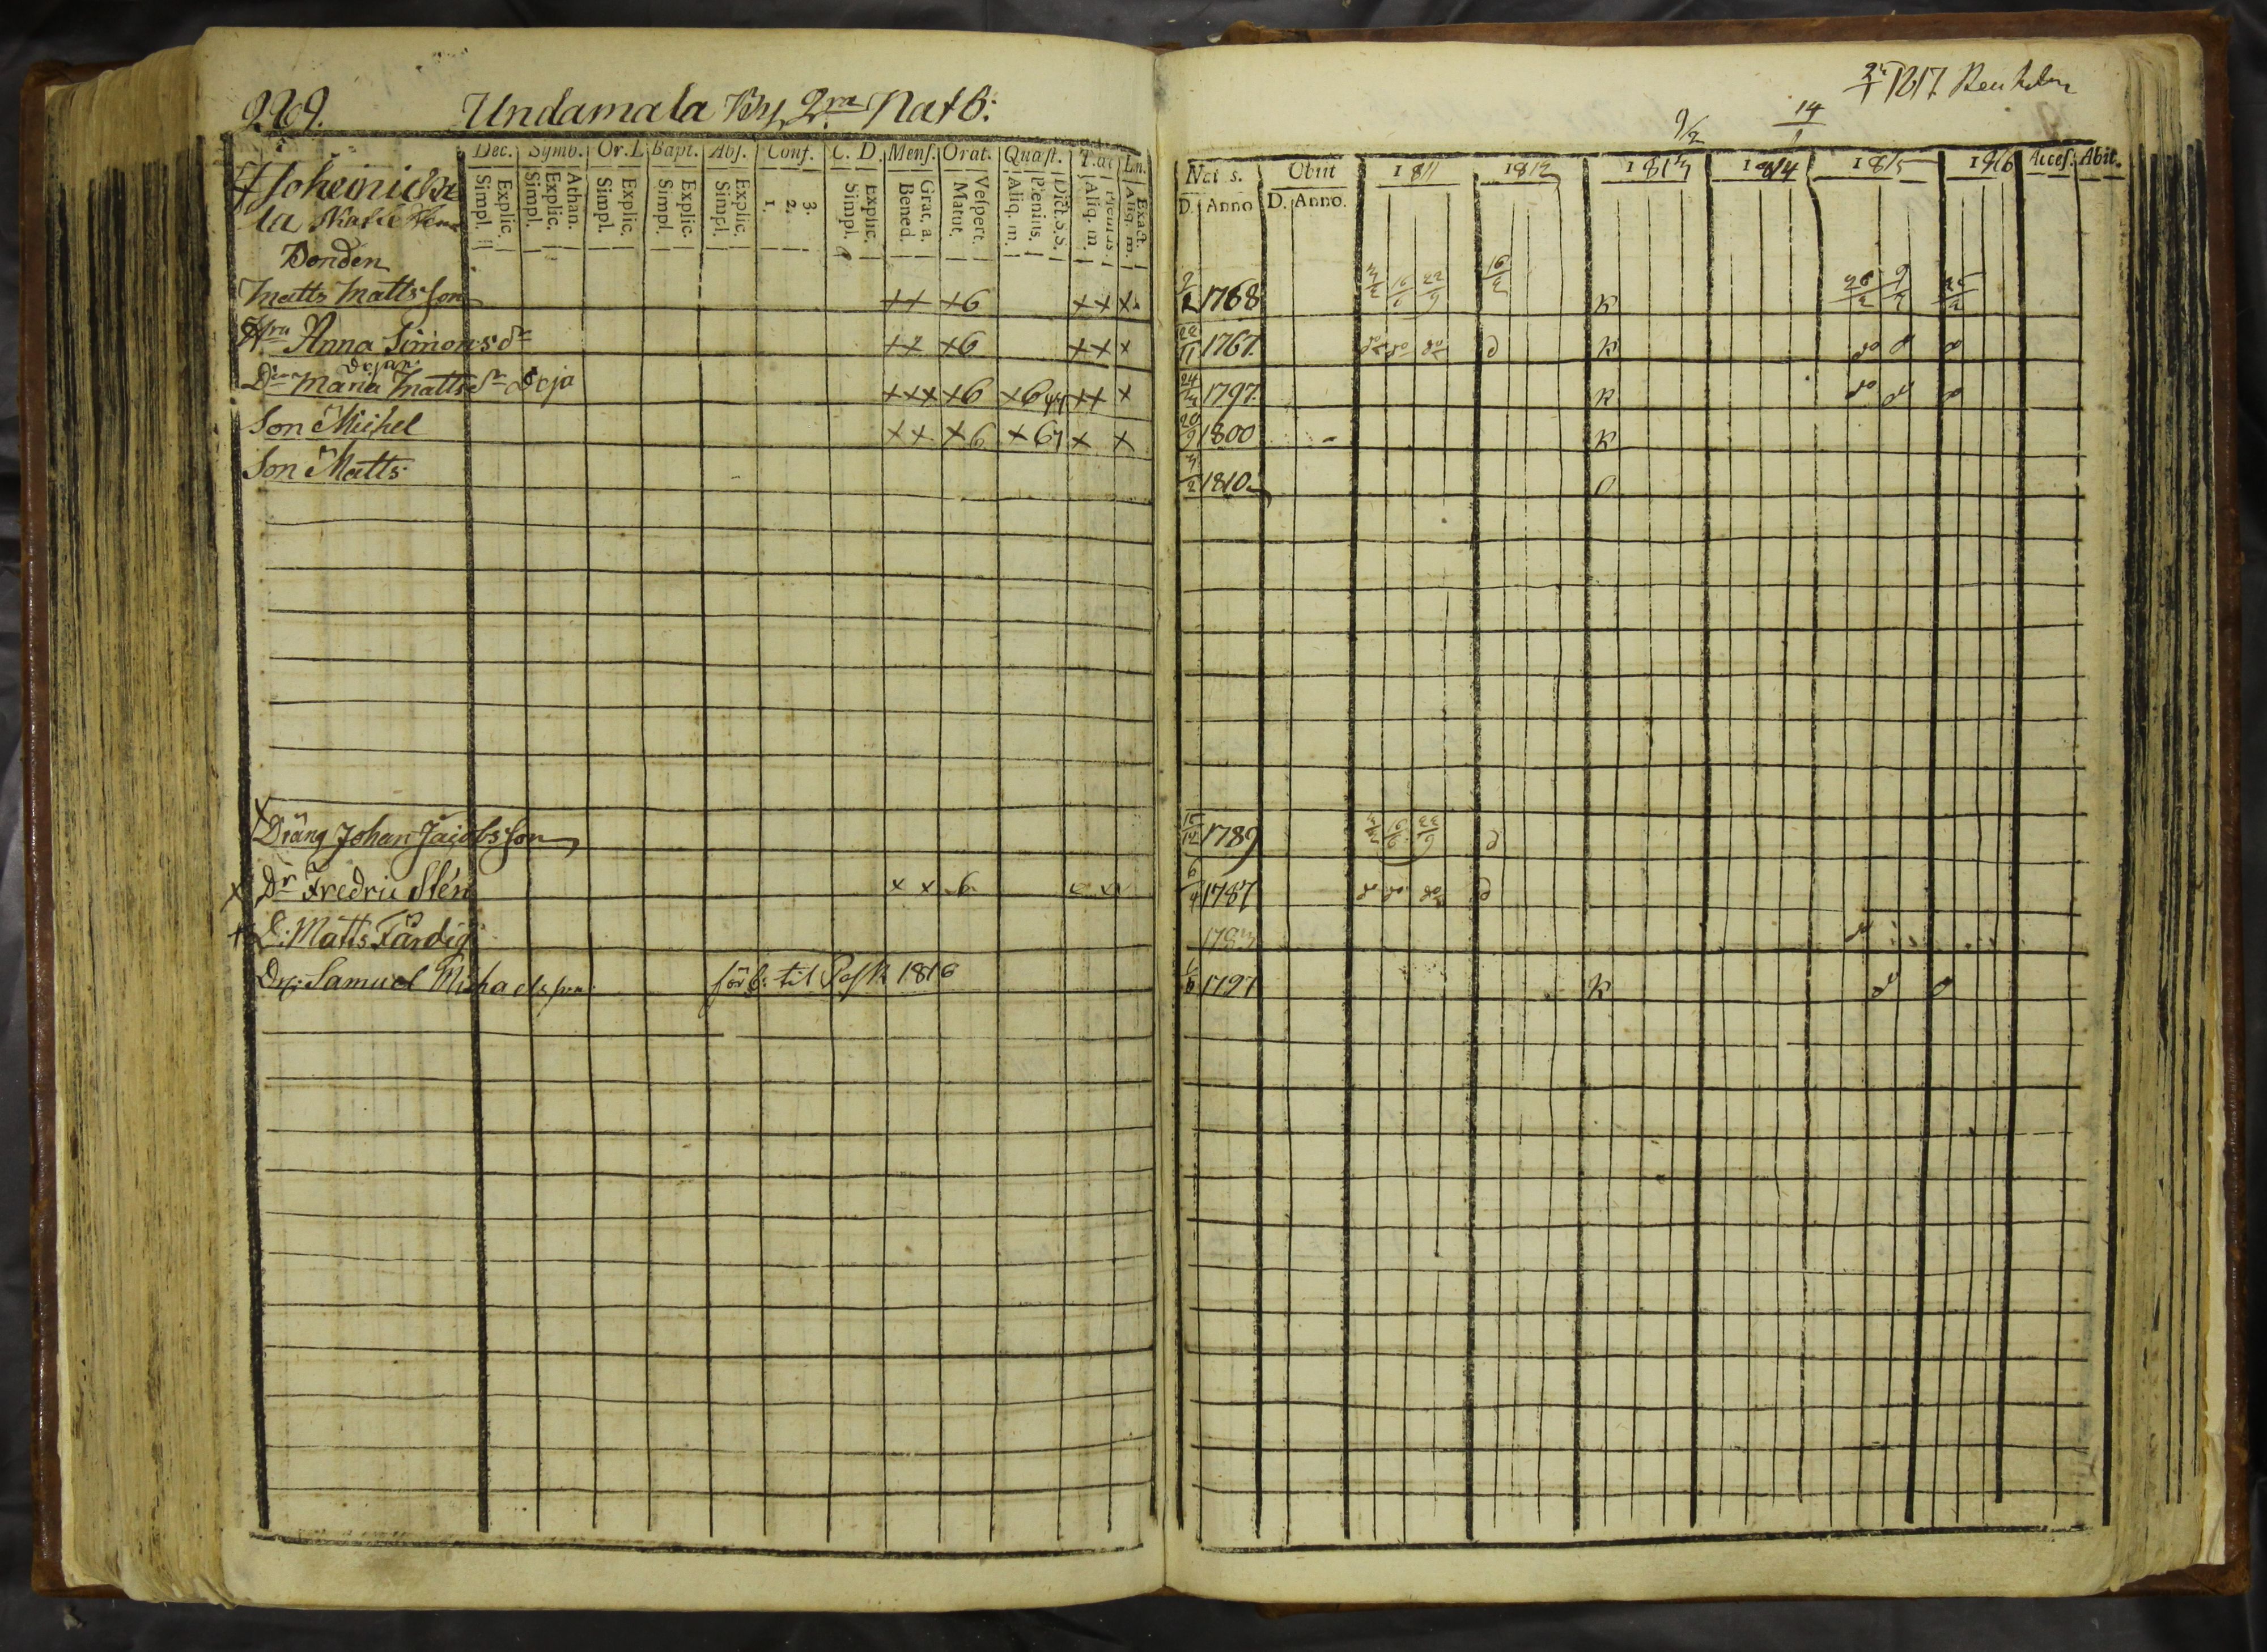 269. Undamala By, 2ra Nat 6:
2/1 1817
9/2 14/1
Dec. Symb. Or. D. Bapt. Abs. Conf. C. D. Mens. Orat. Quæst. T.a. Ln.
Nat s. Obiit 1811 1812 1813 1814 1815 1816 Acces. Abit.
Simpl. Explic. Simpl. Explic. Athan. Simpl. Explic. Simpl. Explic. Simpl. Explic. 1. 2. 3. Simpl. Explic. Bened. Grat. a. Matut. Vespert. Aliq. m. Plenius. Dict. S.S. Aliq. m. Plenius. Aliq. m. Exact.
D. Anno D. Anno.
la
Bonden
Matts Mattsson ++ +6 ++ + 1768 3/2 16/6 22/9 16/3 K 26/2 9/3 25/2
Hu Anna Simonsdr ++ +6 ++ + 22/11 1767 do do do d K do d d
Dr Maria Mattsdr Deja +++ +6 +6 ++ + 24/3 1797 K do do d
Son Michel ++ +6 +6 + + 20/9 1800 - K
Son Matts 3/2 1810
Dräng Johan Jacobsson 15/12 1789 3/2 16/6 22/9 d
x Dr Fredric Sten x x 6 6/4 1787 d do do d
+ D: Matts Färdig 1783 d
Dr: Samuel Michaelsson förb. til Pask 1816 1/6 1797 K d d